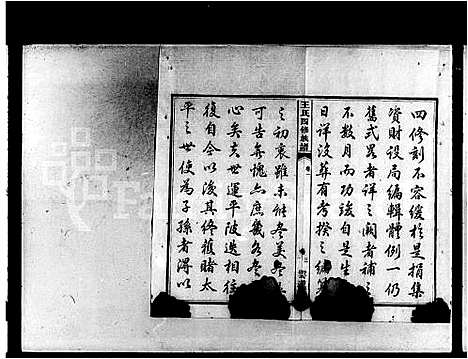 四修刻不容緩於是捐集
資財設局編輯體例一仍
舊式畧者詳之闕者補之
不數月而功竣自是生
日詳沒葬有考揆之
王氏四修族譜
之初衷雖未能盡美盡
可告無愧焉庶幾各
心矣夫世運平陂迭相往
復自今以後其終獲睹太
平之世使為子孫者得以